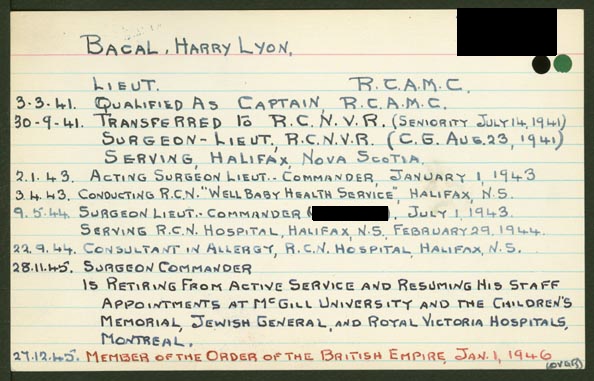 BACAL, HARRY LYON.
LIEUT. R.C.A.M.C.
3.3.41. QUALIFIED AS CAPTAIN, R.C.A.M.C.
30-9-41. TRANSFERRED TO R.C.N.V.R. (SENIORITY JULY 14, 1941)
SURGEON-LIEUT, R.C.N.V.R. (C.G. AUG. 23, 1941)
SERVING, HALIFAX, NOVA SCOTIA.
2.1.43. ACTING SURGEON LIEUT.-COMMANDER, JANUARY 1, 1943
3.4.43. CONDUCTING R.C.N. "WELL BABY HEALTH SERVICE", HALIFAX, N.S.
9.5.44. SURGEON LIEUT.-COMMANDER ( ), JULY 1, 1943.
SERVING R.C.N. HOSPITAL, HALIFAX, N.S, FEBRUARY 29, 1944.
22.9.44. CONSULTANT IN ALLERGY, R.C.N. HOSPITAL, HALIFAX, N.S.
28.11.45. SURGEON COMMANDER
IS RETIRING FROM ACTIVE SERVICE AND RESUMING HIS STAFF
APPOINTMENTS AT MCGILL UNIVERSITY AND THE CHILDREN'S
MEMORIAL, JEWISH GENERAL, AND ROYAL VICTORIA HOSPITALS,
MONTREAL.
27.12.45. MEMBER OF THE ORDER OF THE BRITISH EMPIRE, JAN. 1, 1946
(OVER)